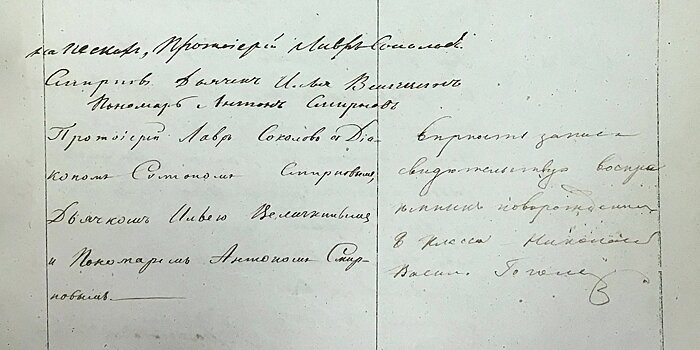 на Пескахъ, Протоіерей Лавръ Соколовъ.
Смирновъ. Дьячекъ Илья
Пономарь Антонъ Смирновъ
Протоіерей Лавръ Соколовъ съ Діа-
кономъ Смирновымъ,
Дьячкомъ Ильею
и Пономаремъ Антономъ Смир-
новымъ.
Верность записи
свидетельствую воспри
емникъ новорожденнаго
8 класса Николай
Васил. Гоголь